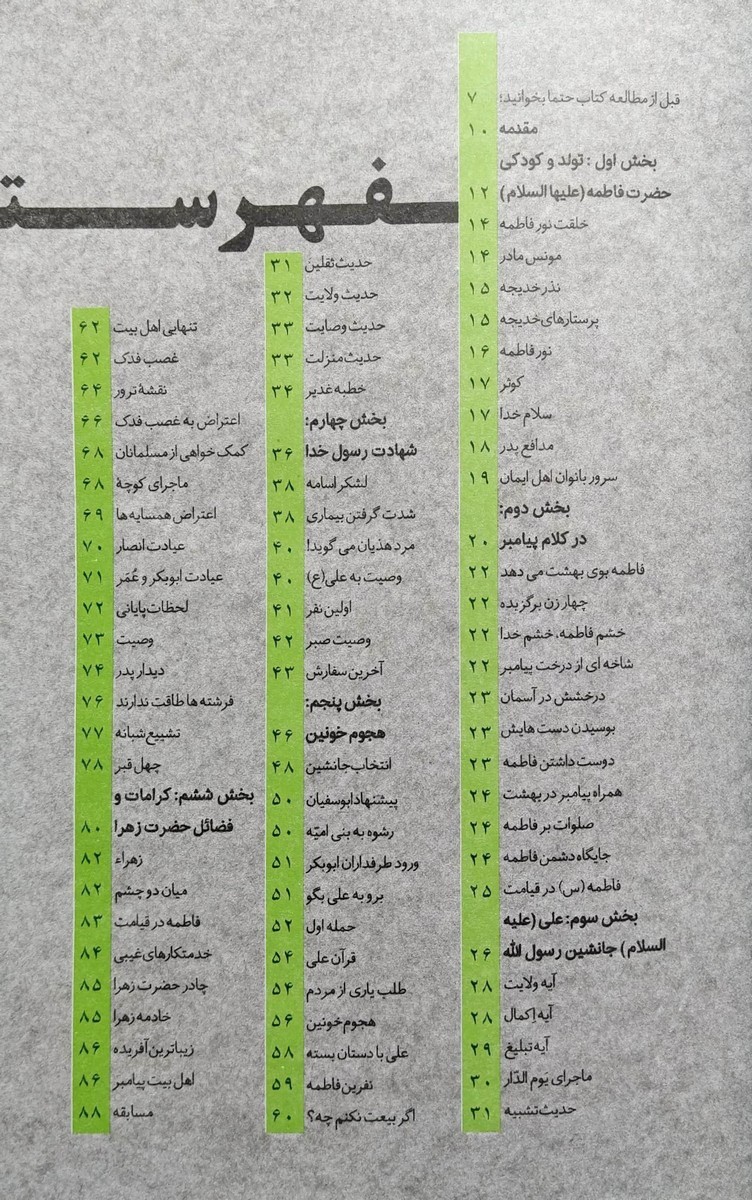 فهرست
قبل از مطالعه کتاب حتما بخوانید؛ ۷
مقدمه ۱۰
بخش اول : تولد و کودکی
حضرت فاطمه (علیها السلام) ۱۲
خلقت نور فاطمه ۱۴
مونس مادر ۱۴
نذر خدیجه ۱۵
پرستارهای خدیجه ۱۵
نور فاطمه ۱۶
کوثر ۱۷
سلام خدا ۱۷
مدافع پدر ۱۸
سرور بانوان اهل ایمان ۱۹
بخش دوم:
در کلام پیامبر ۲۰
فاطمه بوی بهشت می دهد ۲۲
چهار زن برگزیده ۲۲
خشم فاطمه، خشم خدا ۲۲
شاخه ای از درخت پیامبر ۲۲
درخشش در آسمان ۲۳
بوسیدن دست هایش ۲۳
دوست داشتن فاطمه ۲۳
همراه پیامبر در بهشت ۲۴
صلوات بر فاطمه ۲۴
جایگاه دشمن فاطمه ۲۴
فاطمه (س) در قیامت ۲۵
بخش سوم: علی (علیه
السلام) جانشین رسول الله ۲۶
آیه ولایت ۲۸
آیه اِکمال ۲۸
آیه تبلیغ ۲۹
ماجرای یوم الدّار ۳۰
حدیث تشبیه ۳۱
حدیث ثقلین ۳۱
حدیث ولایت ۳۲
حدیث وصایت ۳۳
حدیث منزلت ۳۳
خطبه غدیر ۳۴
بخش چهارم:
شهادت رسول خدا ۳۶
لشکر اسامه ۳۸
شدت گرفتن بیماری ۳۸
مرد هذیان می گوید! ۴۰
وصیت به علی(ع) ۴۰
اولین نفر ۴۱
وصیت صبر ۴۲
آخرین سفارش ۴۳
بخش پنجم:
هجوم خونین ۴۶
انتخاب جانشین ۴۸
پیشنهاد ابوسفیان ۵۰
رشوه به بنی امیّه ۵۰
ورود طرفداران ابوبکر ۵۱
برو به علی بگو ۵۱
حمله اول ۵۲
قرآن علی ۵۴
طلب یاری از مردم ۵۴
هجوم خونین ۵۶
علی با دستان بسته ۵۸
نفرین فاطمه ۵۹
اگر بیعت نکنم چه؟ ۶۰
تنهایی اهل بیت ۶۲
غصب فدک ۶۲
نقشۀ ترور ۶۴
اعتراض به غصب فدک ۶۶
کمک خواهی از مسلمانان ۶۸
ماجرای کوچۀ ۶۸
اعتراض همسایه ها ۶۹
عیادت انصار ۷۰
عیادت ابوبکر و عُمَر ۷۱
لحظات پایانی ۷۲
وصیت ۷۳
دیدار پدر ۷۴
فرشته ها طاقت ندارند ۷۶
تشییع شبانه ۷۷
چهل قبر ۷۸
بخش ششم: کرامات و
فضائل حضرت زهرا ۸۰
زهراء ۸۲
میان دو چشم ۸۲
فاطمه در قیامت ۸۳
خدمتکارهای غیبی ۸۴
چادر حضرت زهرا ۸۵
خادمه زهرا ۸۵
زیباترین آفریده ۸۶
اهل بیت پیامبر ۸۶
مسابقه ۸۸